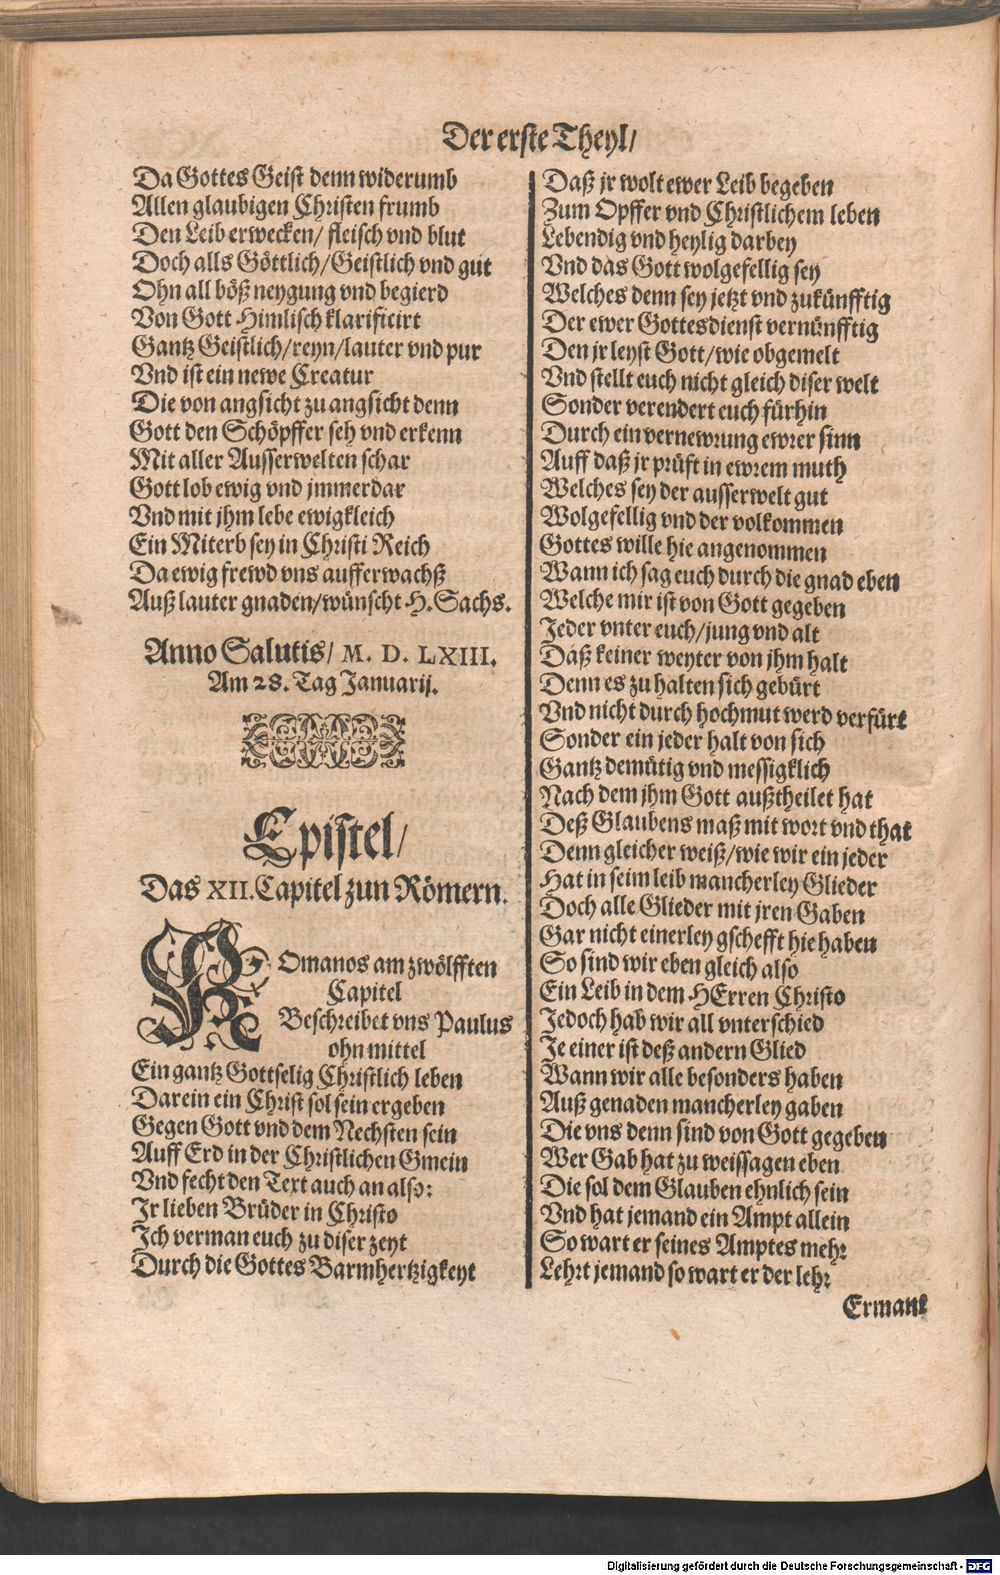 Der erste Theyl/
Da Gottes Geist denn widerumb
Allen glaubigen Christen frumb
Den Leib erwecken/ fleisch vnd blut
Doch alls Göttlich/Geistlich vnd gut
Ohn all böß neygung vnd begierd
Von Gott Himlisch klarificirt
Gantz Geistlich/reyn/lauter vnd pur
Vnd ist ein newe Creatur
Die von angsicht zu angsicht denn
Gott den Schöpffer seh vnd erkenn
Mit aller Ausserwelten schar
Gott lob ewig vnd jmmerdar
Vnd mit jhm lebe ewigkleich
Ein Miterb sey in Christi Reich
Da ewig frewd vns aufferwachß
Auß lauter gnaden/wünscht H. Sachs.
Anno Salutis/ M. D. LXIII.
Am 28. Tag Januarij.
Epistel/
Das XII. Capitel zun Römern.
ROmanos am zwölfften
Capitel
Beschreibet vns Paulus
ohn mittel
Ein gantz Gottselig Christlich leben
Darein ein Christ sol sein ergeben
Gegen Gott vnd dem Nechsten sein
Auff Erd in der Christlichen Gmein
Vnd fecht den Text auch an also:
Jr lieben Brüder in Christo
Ich verman euch zu diser zeyt
Durch die Gottes Barmhertzigkeyt
Daß jr wolt ewer Leib begeben
Zum Opffer vnd Christlichem leben
Lebendig vnd heylig darbey
Vnd das Gott wolgefellig sey
Welches denn sey jetzt vnd zukünfftig
Der ewer Gottesdienst vernünfftig
Den jr leyst Gott/wie obgemelt
Vnd stellt euch nicht gleich diser welt
Sonder verendert euch fürhin
Durch ein vernewrung ewrer sinn
Auff daß jr prüft in ewrem muth
Welches sey der ausserwelt gut
Wolgefellig vnd der volkommen
Gottes wille hie angenommen
Wann ich sag euch durch die gnad eben
Welche mir ist von Gott gegeben
Jeder vnter euch/jung vnd alt
Daß keiner weyter von jhm halt
Denn es zu halten sich gebürt
Vnd nicht durch hochmut werd verfürt
Sonder ein jeder halt von sich
Gantz demütig vnd messigklich
Nach dem jhm Gott außtheilet hat
Deß Glaubens maß mit wort vnd that
Denn gleicher weiß/wie wir ein jeder
Hat in seim leib mancherley Glieder
Doch alle Glieder mit jren Gaben
Gar nicht einerley gschefft hie haben
So sind wir eben gleich also
Ein Leib in dem HErren Christo
Jedoch hab wir all vnterschied
Je einer ist deß andern Glied
Wann wir alle besonders haben
Auß genaden mancherley gaben
Die vns denn sind von Gott gegeben
Wer Gab hat zu weissagen eben
Die sol dem Glauben ehnlich sein
Vnd hat jemand ein Ampt allein
So wart er seines Amptes mehr
Lehrt jemand so wart er der lehr
Ermant
Digitalisierung gefördert durch die Deutsche Forschungsgemeinschaft - DFG